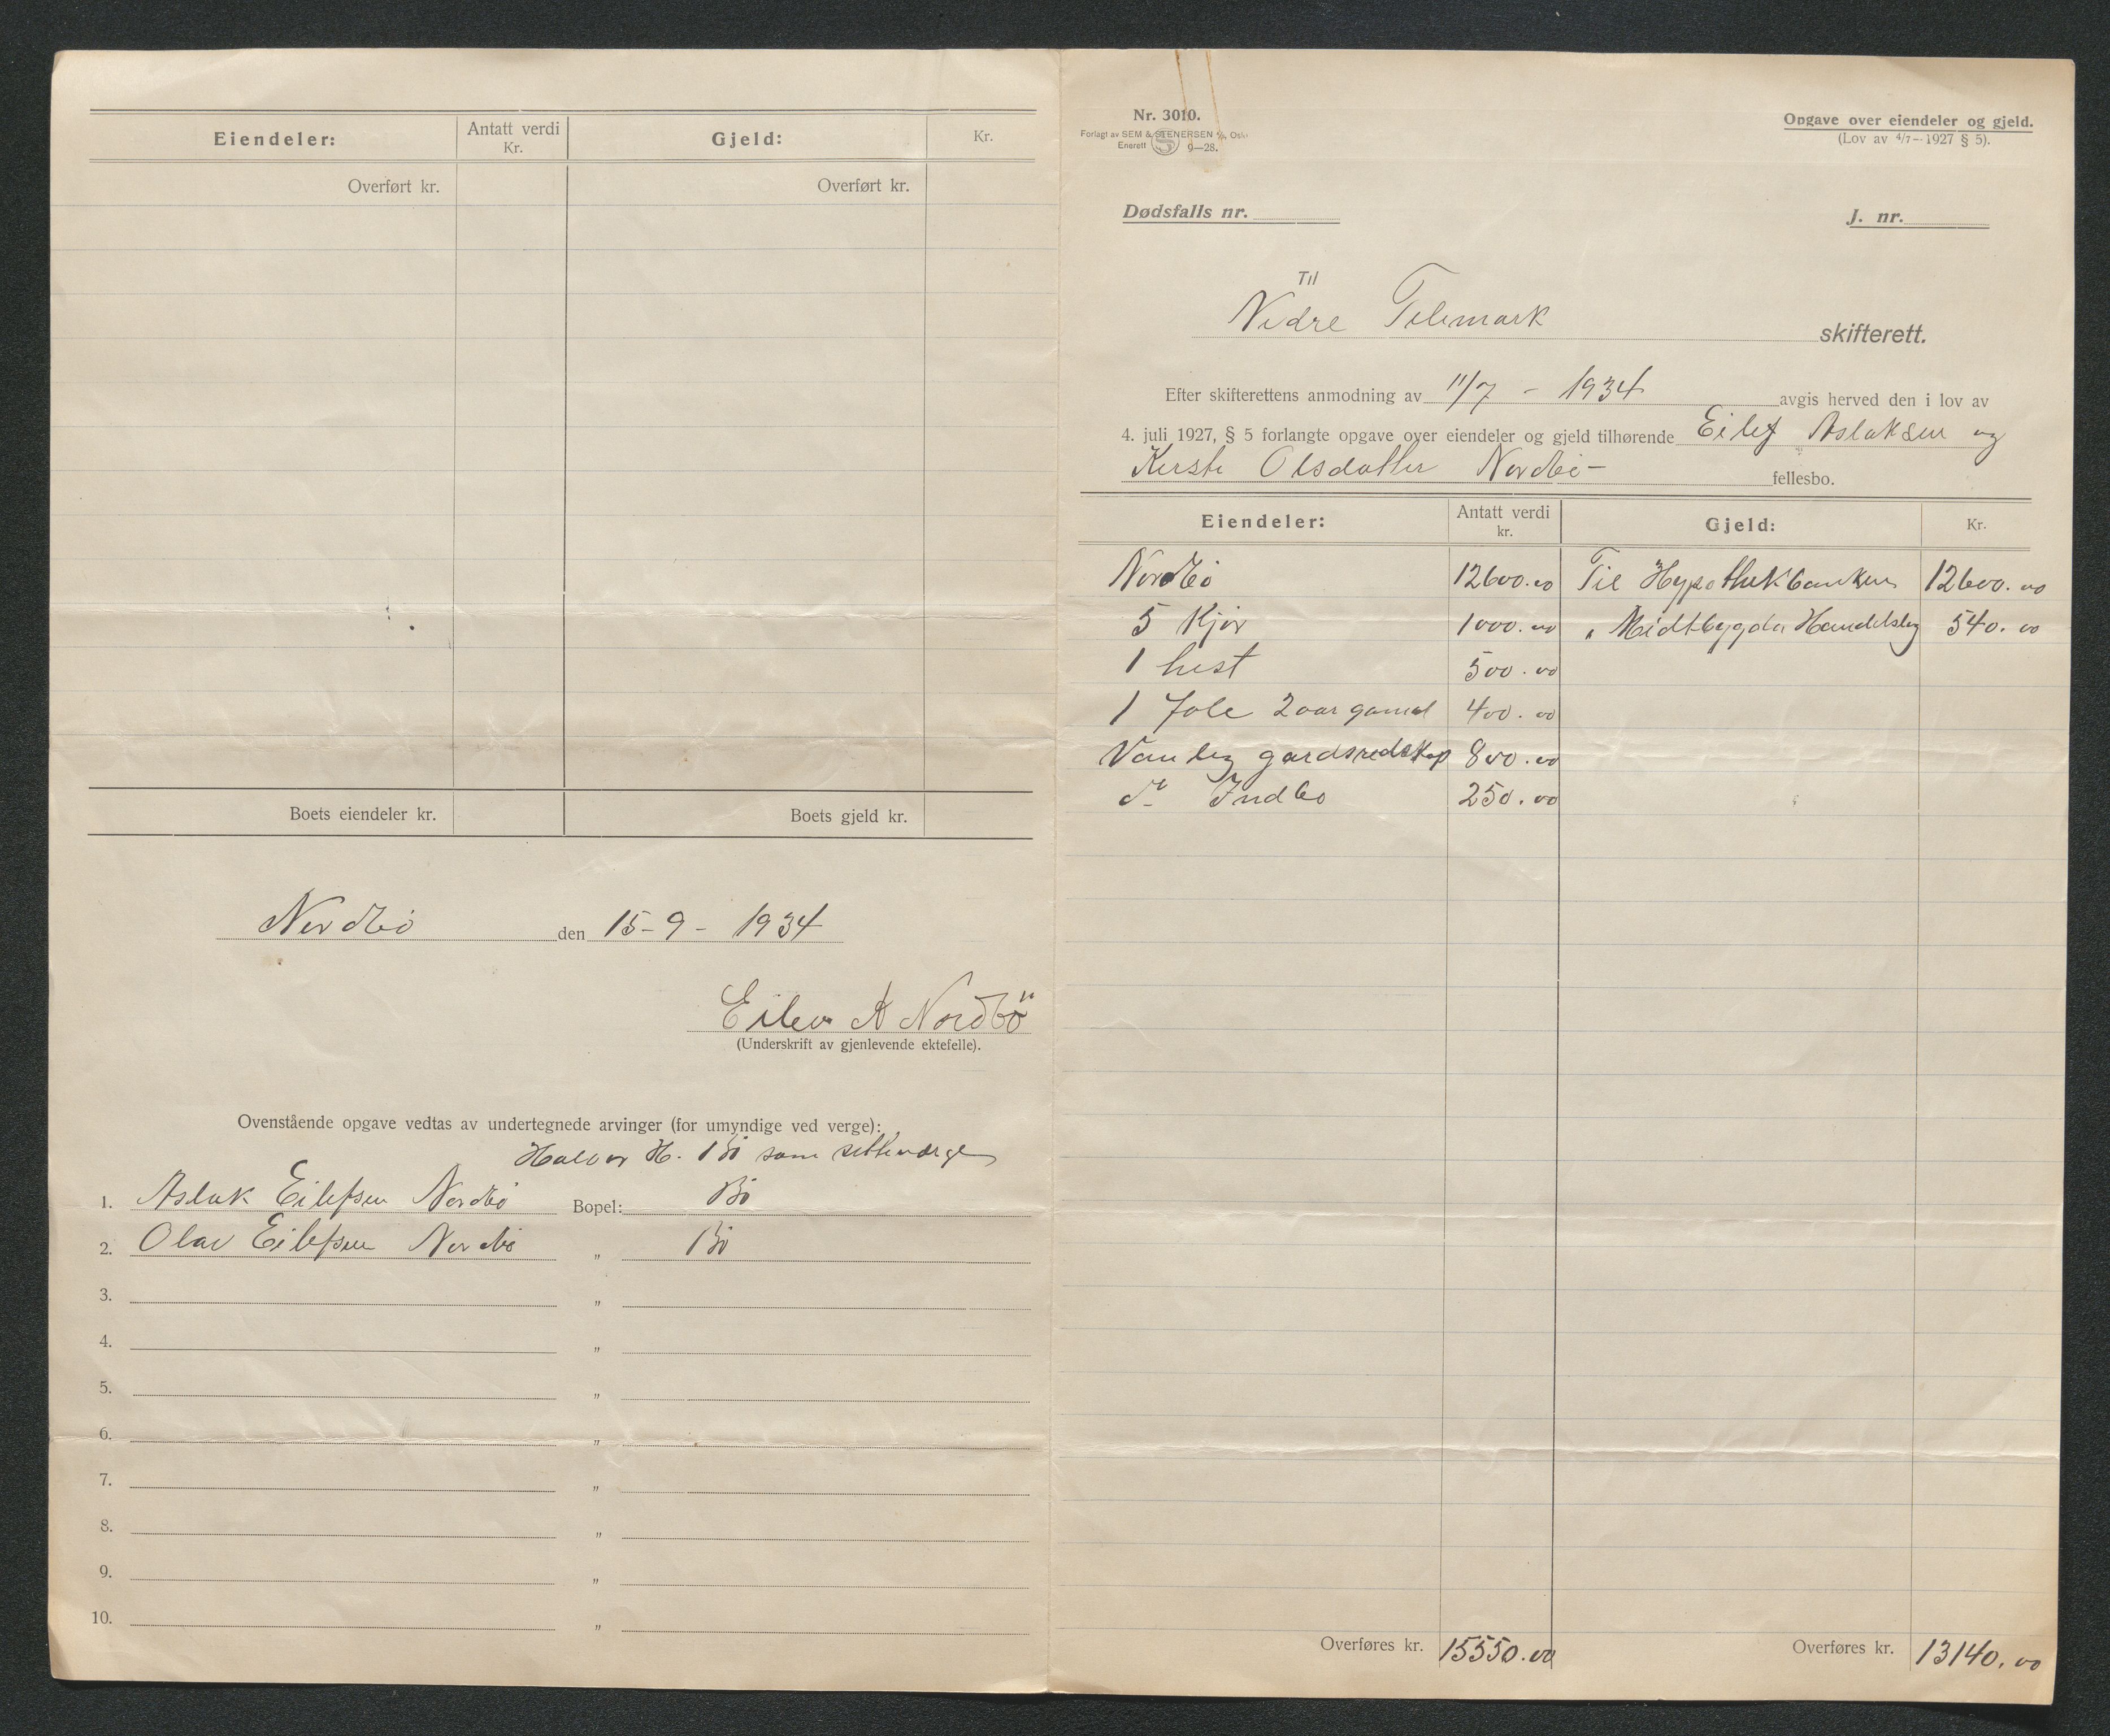 Eiendeler: Antatt verdi Kr. Gjeld: Kr.
Overført kr. Overført kr.
Boets eiendeler kr. Boets gjeld kr.
Nordbö den 15-9-1934
Eilev A Nordbö
(Underskrift av gjenlevende ektefelle).
Ovenstående opgave vedtas av undertegnede arvinger (for umyndige ved verge):
Halvor H. Bö som setteverge
1. Aslak Eilefsen Nordbö Bopel: Bö
2. Olav Eilefsen Nordbö „ Bö
3. „
4. „
5. „
6. „
7. „
8. „
9. „
10. „
Nr. 3010.
Forlagt av SEM & STENERSEN A/S, Oslo
Enerett S 9—28.
Opgave over eiendeler og gjeld.
(Lov av 4/7—1927 § 5).
Dødsfalls nr. J. nr.
Til
Nedre Telemark skifterett.
Efter skifterettens anmodning av 11/7 - 1934 avgis herved den i lov av
4. juli 1927, § 5 forlangte opgave over eiendeler og gjeld tilhørende Eilef Aslaksen og
Kersti Olsdatter Nordbö - fellesbo.
Eiendeler: Antatt verdi kr. Gjeld: Kr.
Nordbö 12600.00 Til Hypothekbanken 12600.00
5 Kjør 1000.00 „ Midtbygda Handelslag 540.00
1 hest 500.00
1 Fole 2 aar gamal 400.00
Vanleg gardsredskap 800.00
do Indbo 250.00
Overføres kr. 15550.00 Overføres kr. 13140.00